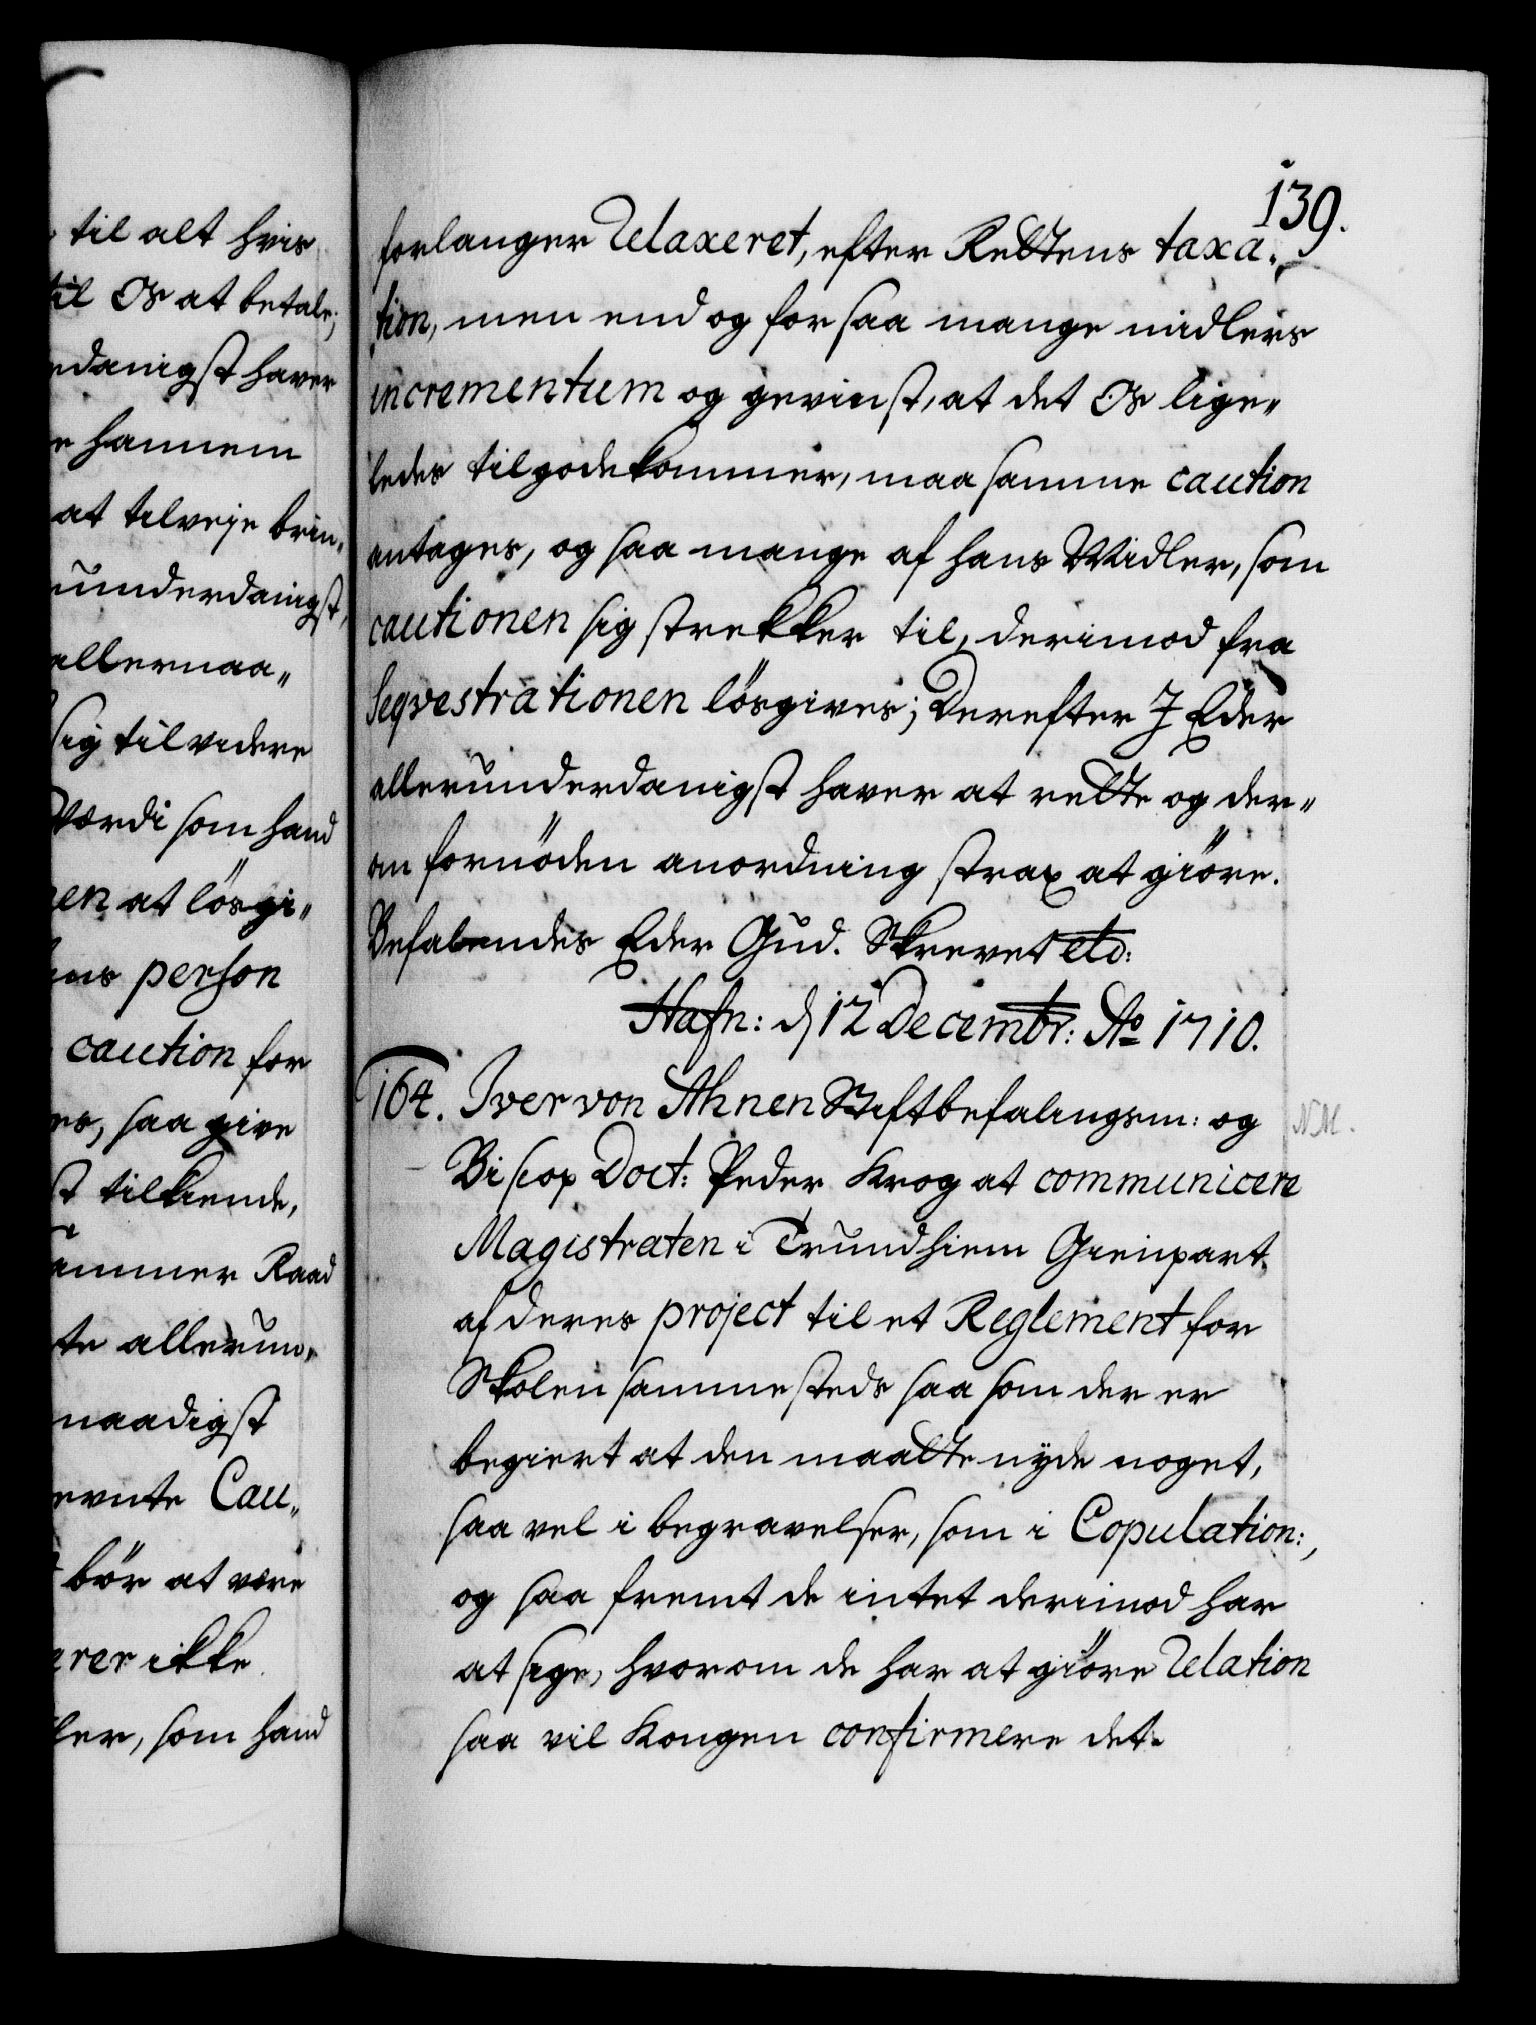 til alt hvis
til Os at betale,
danigst haver
hannem
at tilveje brin„
underdanigst,
allernaa„
sig til videre
værdi som hand
en at lösgi„
ens person
caution for
es, saa give
tilkiende,
ammer Raad
te allerun„
naadigst
ernte Cau„
bör at være
erer ikke
ler, som hand
139.
forlanger relaxeret, efter Rettens taxa„
tion, men end og for saa mange midlers
incrementum og gevinst, at det Os lige„
ledes tilgodekommer, maa samme caution
antages, og saa mange af hans Midler, som
cautionen sig strekker til, derimod fra
Seqvestrationen lösgives; Derefter I Eder
allerunderdanigst haver at rette og der„
om fornöden anordning strax at giöre.
Befalendes Eder Gud. Skrevet etc:
Hafn: d 12 Decembr: Ao 1710.
164. Iver von Ahnen Stiftbefalingsm: og
N.M.
Biscop Doct: Peder Krog at communicere
Magistraten i Trundhiem Gienpart
af deres project til et Reglement for
Skolen sammesteds saa som der er
begiert at den maatte nyde noget,
saa vel i begravelser, som i Copulation:,
og saa fremt de intet derimod har
at sige, hvorom de har at giöre relation
saa vil Kongen confirmere det.